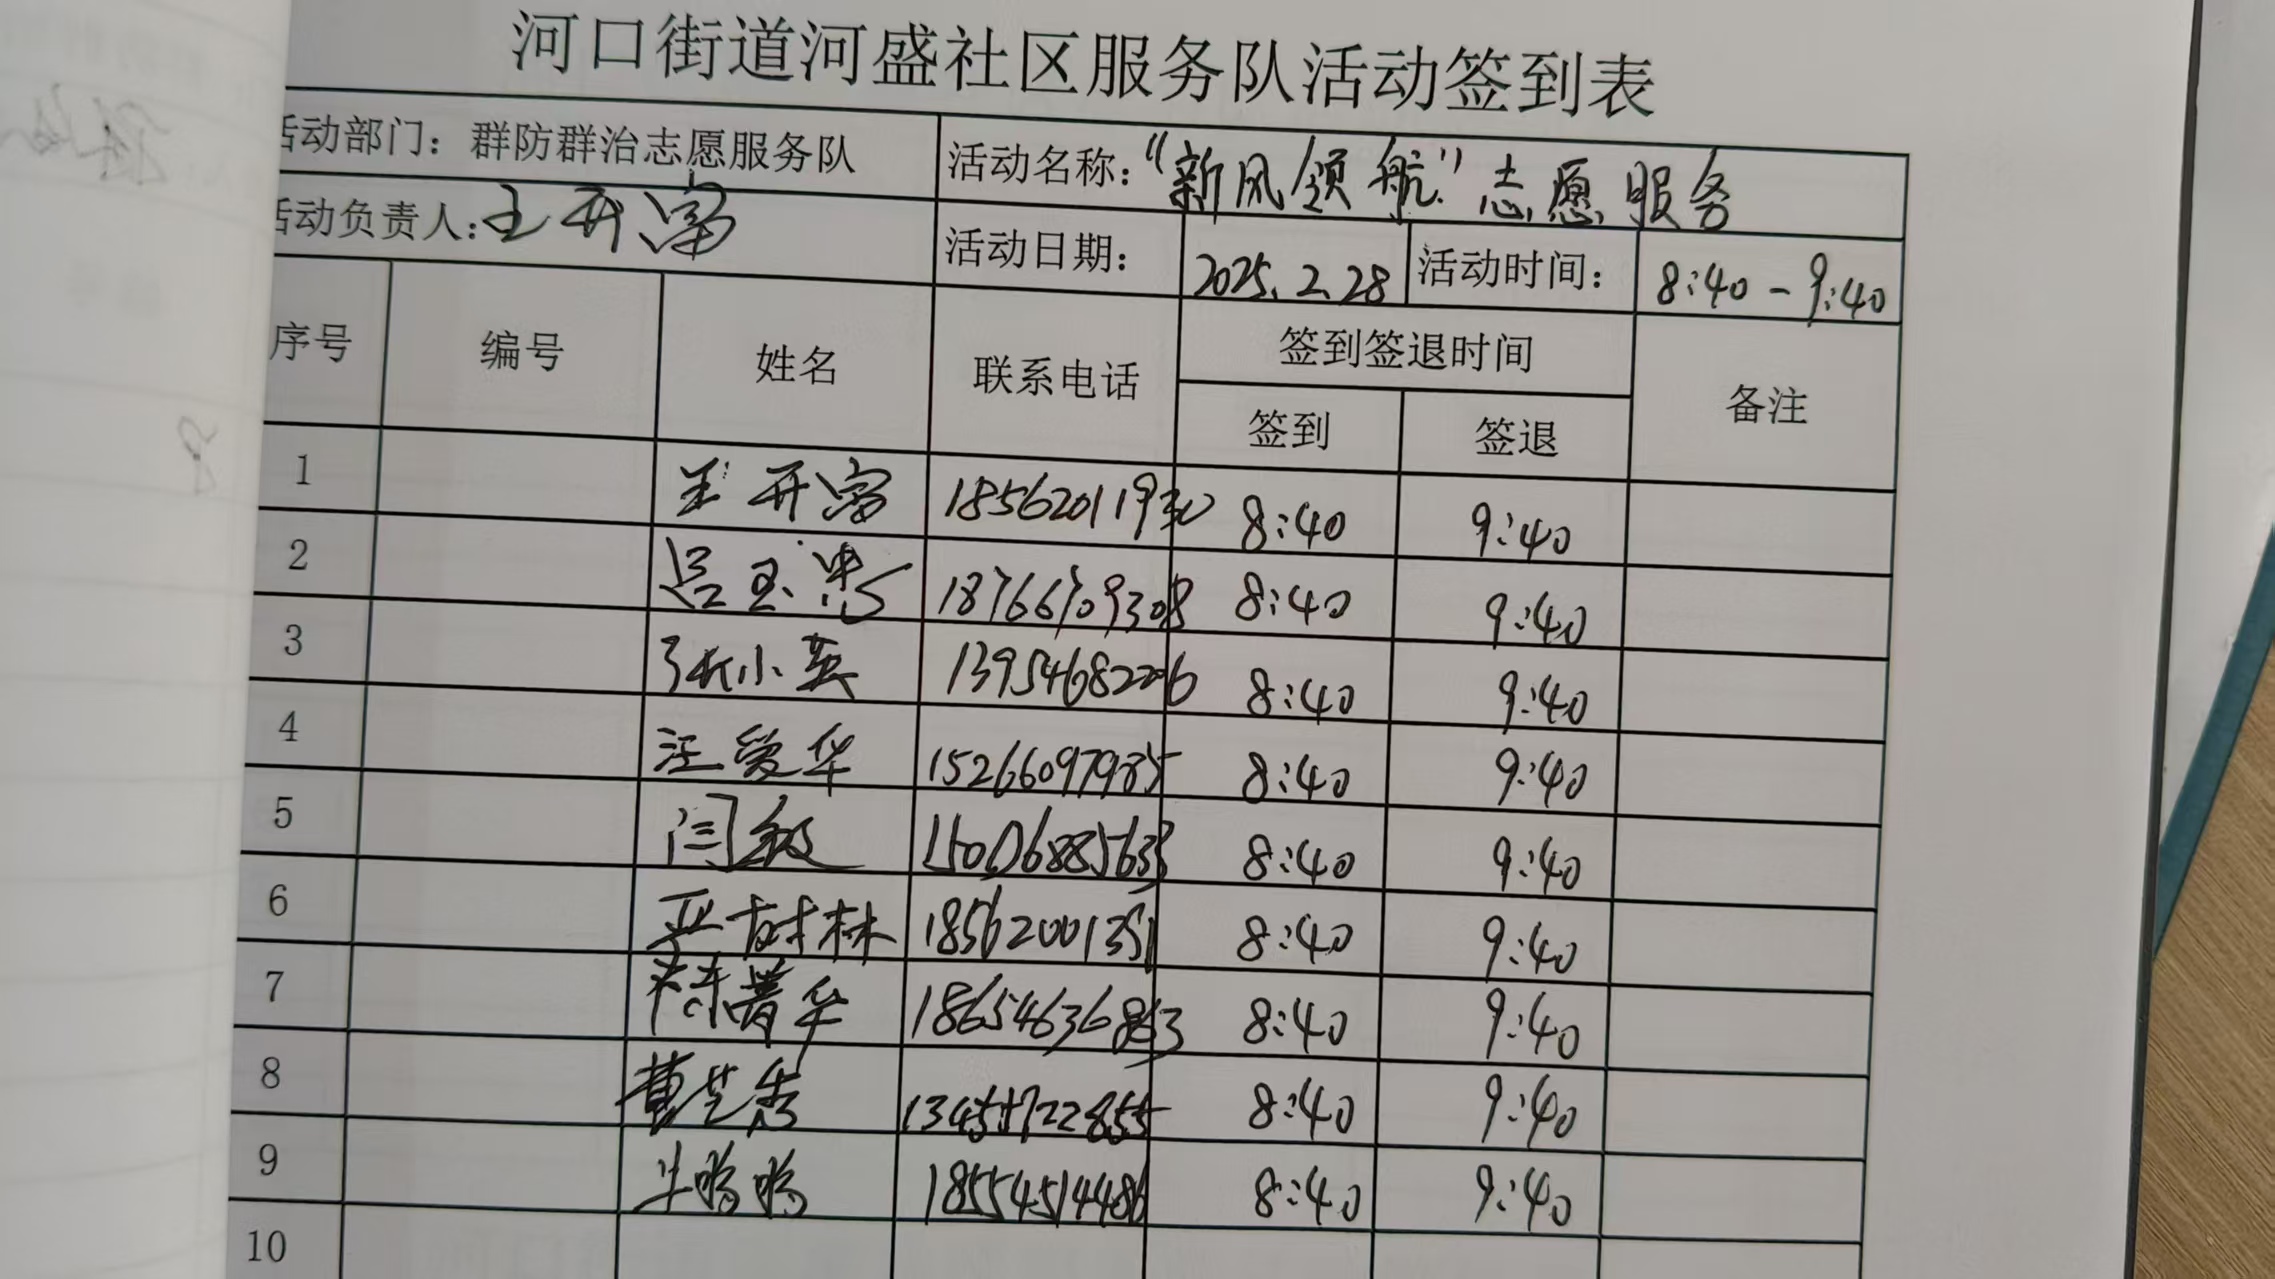 河口街道河盛社区服务队活动签到表
活动部门：群防群治志愿服务队 活动名称：“新风领航”志愿服务
活动负责人：王开富 活动日期： 2025.2.28 活动时间： 8:40-9:40
序号 编号 姓名 联系电话 签到签退时间 备注
签到 签退
1 王开富 18562011930 8:40 9:40
2 吕玉忠 18766709308 8:40 9:40
3 张小英 13954682206 8:40 9:40
4 汪爱华 15266097985 8:40 9:40
5 闫敏 15006885633 8:40 9:40
6 树林 18562001351 8:40 9:40
7 华 18654636863 8:40 9:40
8 8:40 9:40
9 18554514486 8:40 9:40
10